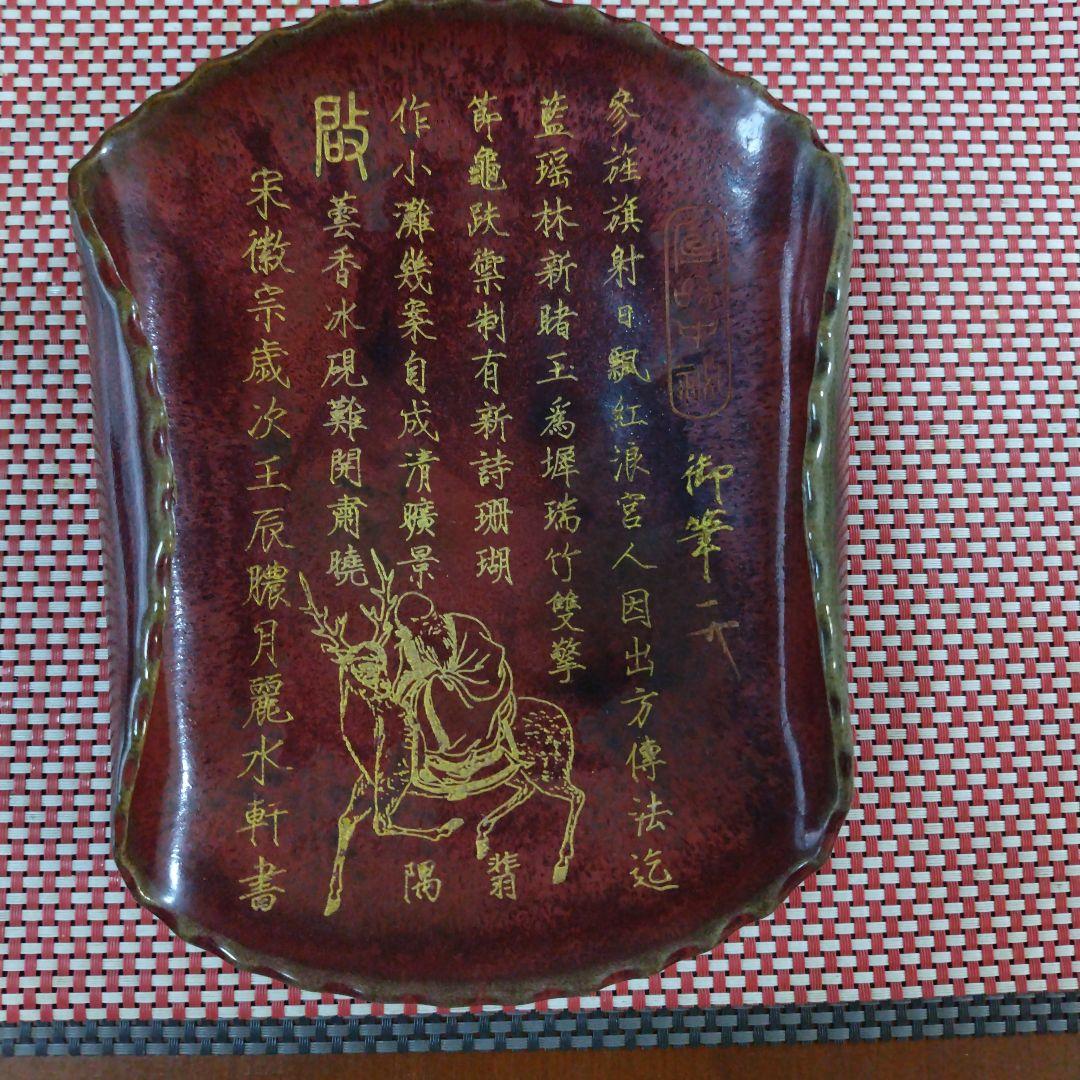 御筆
參旌旗射日飄紅浪宮人因出方傳法迄
藍瑶林新睹玉爲墀瑞竹雙擎
節龜趺禦制有新詩珊瑚翡
作小灘幾案自成清曠景隅
啟蕓香冰硯難開肅曉
宋徽宗歲次王辰膿月麗水軒書